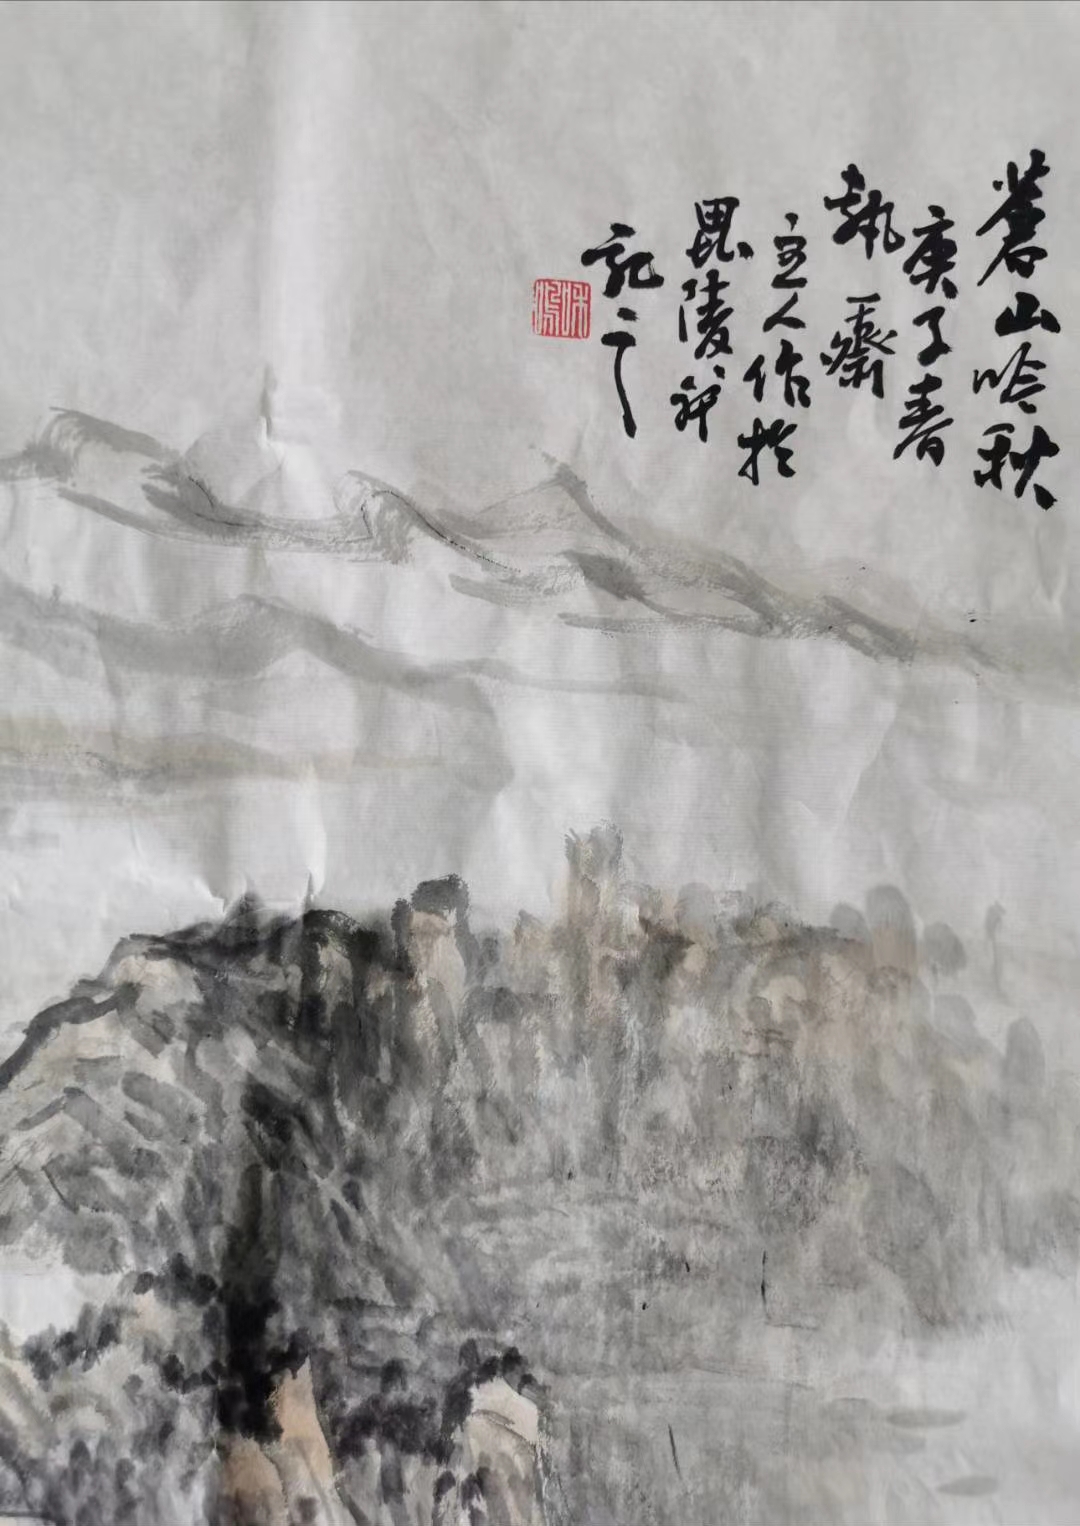 蒼山吟秋
庚子春
執齋
主人作於
毘陵
記之